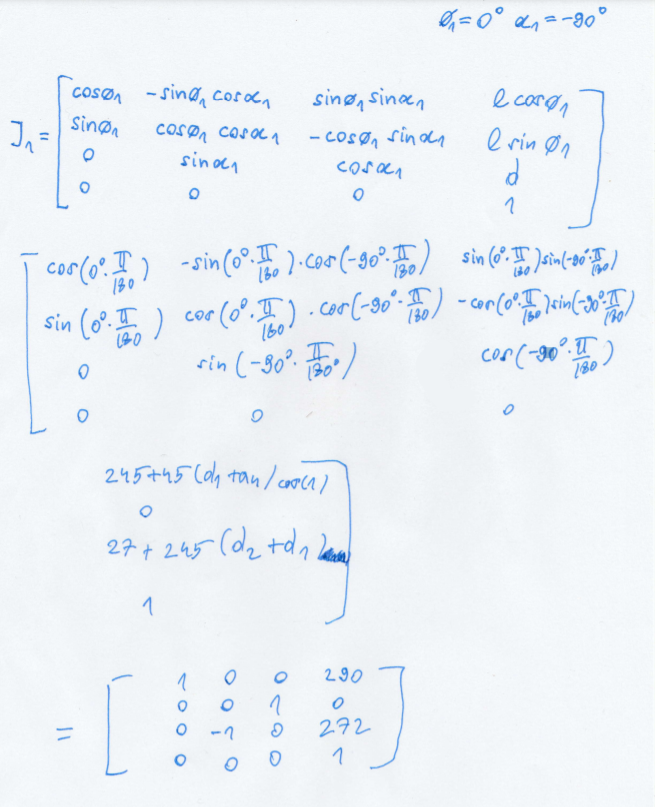 ø₁=0° α₁=-90°
J₁ =
cosø₁ -sinø₁ cosα₁ sinø₁ sinα₁ l cosø₁
sinø₁ cosø₁ cosα₁ -cosø₁ sinα₁ l sin ø₁
0 sinα₁ cosα₁ d
0 0 0 1
cos(0°·π/180) -sin(0°·π/180)·cos(-90°·π/180) sin(0°·π/180)sin(-90°·π/180)
sin(0°·π/180) cos(0°·π/180)·cos(-90°·π/180) -cos(0°·π/180)sin(-90°·π/180)
0 sin(-90°·π/180°) cos(-90°·π/180)
0 0 0
245+45(d₁ +a₁)
0
27+245(d₂+d₁)
1
1 0 0 290
0 0 1 0
= 0 -1 0 272
0 0 0 1